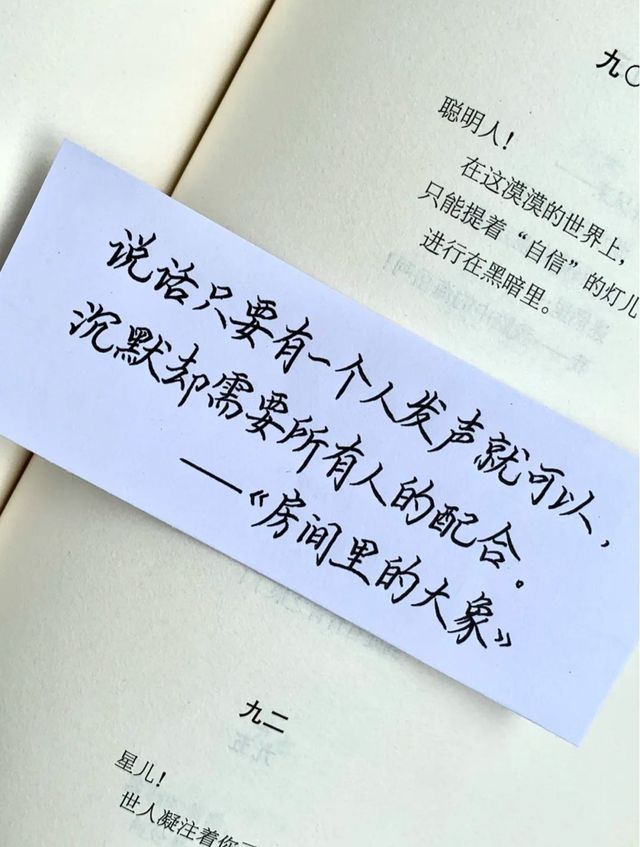 九〇
聪明人！
在这漠漠的世界上，
只能提着“自信”的灯儿
进行在黑暗里。
说话只要有一个人发声就可以，
沉默却需要所有人的配合。
——《房间里的大象》
九二
星儿！
世人凝注着你